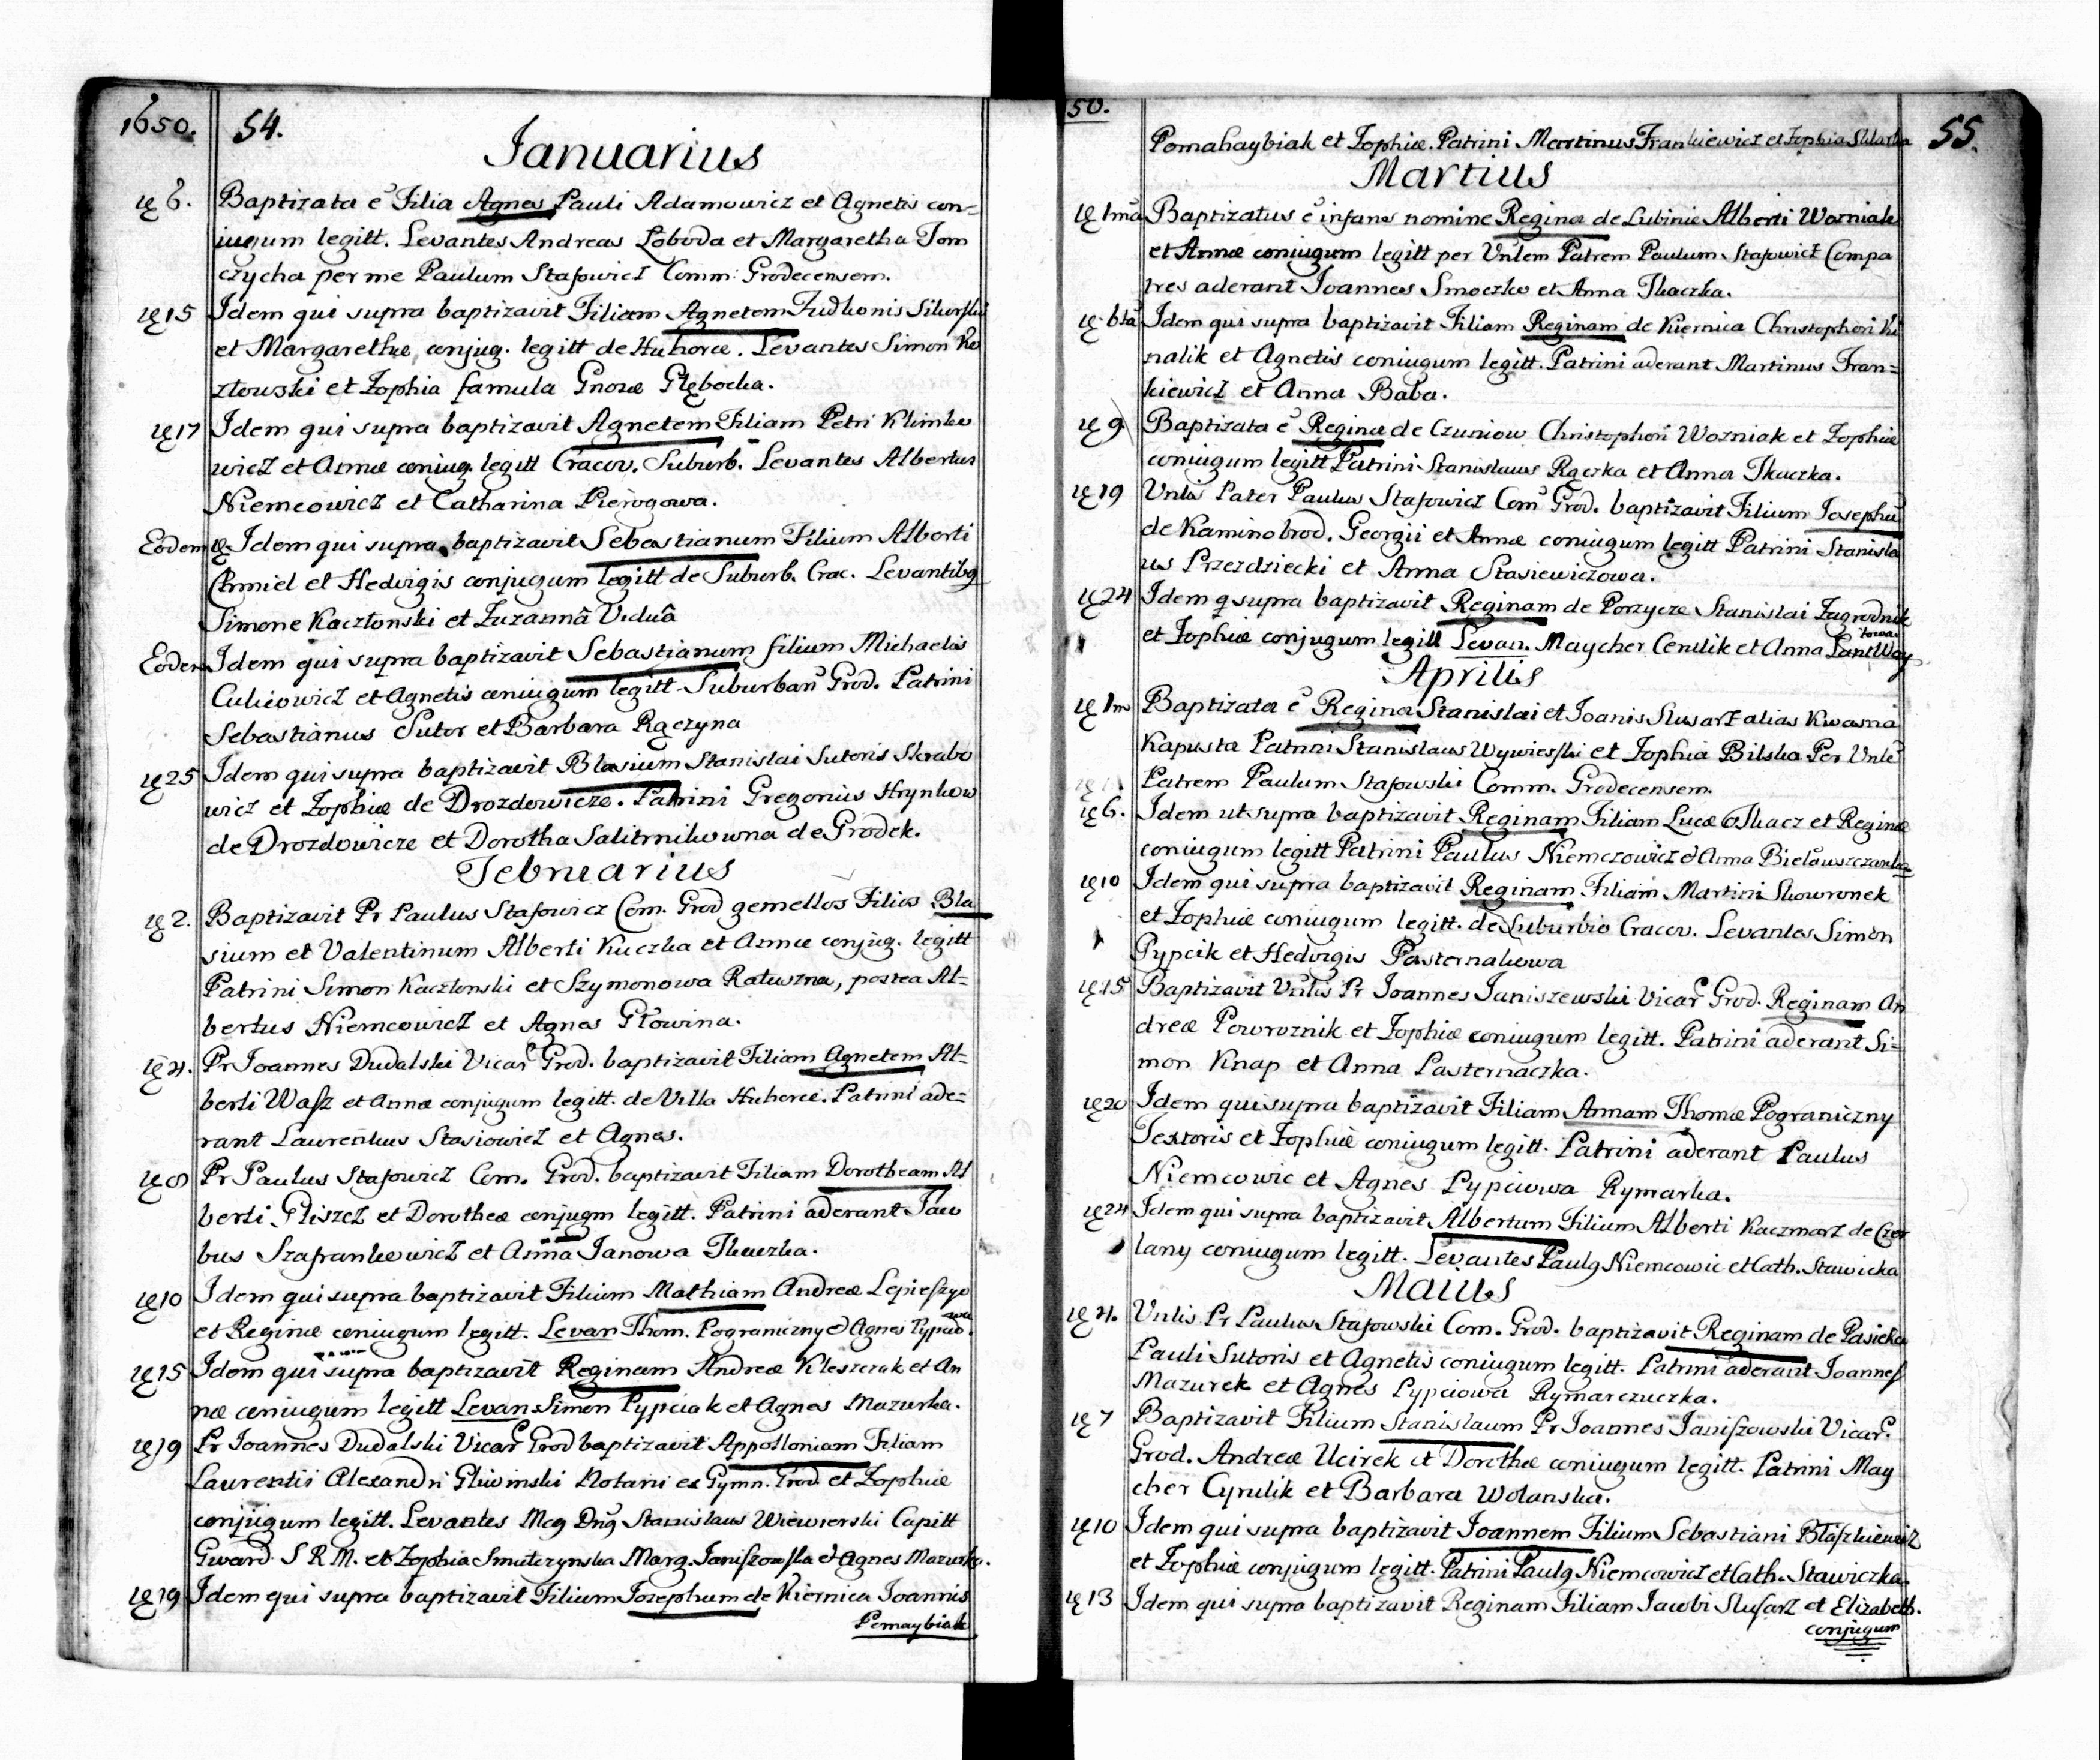 1650. 54.
Ianuarius
6. Baptizata e Filia Agnes Pauli Adamowicz et Agnetis con=
iugum legitt. Levantes Andreas Loboda et Margaretha Tom
czycha per me Paulum Stafowicz Comm: Grodecensem.
15 Idem qui supra baptizavit Filiam Agnetem
et Margarethæ conjug. legitt de Huhorce. Levantes Simon Ko
złowski et Zophia famula Gnosæ Głębocka.
17 Idem qui supra baptizavit Agnetem Filiam Petri Klimko
wicz et Annæ coniug. legitt Cracov. Suburb. Levantes Albertus
Niemcowicz et Catharina Pierogowa.
Eodem Idem qui supra baptizavit Sebastianum Filium Alberti
Chmiel et Hedvigis conjugum legitt de Suburb. Crac. Levantibg
Simone Kaczłonski et Zuzannâ Viduâ
Eodem Idem qui supra baptizavit Sebastianum filium Michaelis
et Agnetis coniugum legitt Suburban Grod. Patrini
Sebastianus Sutor et Barbara Rączyna
25 Idem qui supra baptizavit Blasium Stanislai Sutoris Skrabo
wicz et Zophiæ de Drozdowicze. Patrini Gregorius Hrynkow
de Drozdowicze et Dorotha Salitrnikowna de Grodek.
Februarius
2. Baptizavit Pr Paulus Stafowicz Com. Grod gemellos Filios Bla
sium et Valentinum Alberti Kuczka et Annæ conjug. legitt
Patrini Simon Kaczłonski et Szymonowa Ratuszna, postea Al=
bertus Niemcowicz et Agnes Głowina.
4. Pr Joannes Dudalski Vicar Grod. baptizavit Filiam Agnetem Al=
berti Wasz et Annæ conjugum legitt. de Villa Huhorce. Patrini ade=
rant Laurentius Stasiowicz et Agnes.
8 Pr Paulus Stafowicz Com. Grod. baptizavit Filiam Dorotheam Al
berti Gliszcz et Dorotheæ conjugm legitt. Patrini aderant Jaco
bus Szafrankowicz et Anna Janowa Tkaczka.
10 Idem qui supra baptizavit Filium Mathiam Andreæ
et Reginæ coniugum legitt. Levan Thom. Pograniczny & Agnes
15 Idem qui supra baptizavit Reginam Andreæ Kleszczak et An
næ coniugum legitt Levan Simon Pypciak et Agnes Mazurka.
19 Pr Joannes Dudalski Vicar Grod baptizavit Appolloniam Filiam
Laurentii Alexandri Gliwinski Notarii ex Gymn. Grod et Zophiæ
conjugum legitt. Levantes Mcg Dng Stanislaus Wiewierski Capitt
Gward S R M. et Zophia Smulczynska Marg. Janiszowska & Agnes Mazurka.
19 Idem qui supra baptizavit Filium Iosephum de Kiernica Ioannis
Pomaybiak
50. 55.
Pomahaybiak et Zophiæ. Patrini Martinus Frankiewicz et Zophia
Martius
1ma Baptizatus e infans nomine Regina de Lubinie Alberti Wozniak
et Annæ coniugum legitt per Vnlem Patrem Paulum Stafowicz Compa
tres aderant Joannes Smoczko et Anna Tkaczka.
6ta Idem qui supra baptizavit Filiam Reginam de Kiernica Christophori Ki
nalik et Agnetis coniugum legitt. Patrini aderant Martinus Fran=
kiewicz et Anna Baba.
9 Baptizata e Regina de Czuniow Christophori Wozniak et Zophiæ
coniugum legitt Patrini Stanislaus Rączka et Anna Tkaczka.
19 Vnlis Pater Paulus Stafowicz Com Grod. baptizavit Filium Iosephũ
de Kaminobrod. Georgii et Annæ coniugum legitt Patrini Stanisla
us Przezdziecki et Anna Stasiewiczowa.
24 Idem q supra baptizavit Reginam de Porzycze Stanislai Zagrodnik
et Zophiæ conjugum legitt Levan. Maycher Cerulik et Anna
Aprilis
1m Baptizata e Regina Stanislai et Joanis Slusarz alias Kwasna
Kapusta Patrini Stanislaus Wywierski et Zophia Bilska Per Vnlẽ
Patrem Paulum Stafowski Comm. Grodecensem.
6. Idem ut supra baptizavit Reginam Filiam Lucæ Tkacz et Reginæ
coniugum legitt Patrini Paulus Niemczowicz & Anna
10 Idem qui supra baptizavit Reginam Filiam Martini Skowronek
et Zophiæ coniugum legitt. de Suburbio Cracov. Levantes Simon
Pypcik et Hedvigis Pasternakowa
15 Baptizavit Vnlis Pr Joannes Janiszewski Vicar Grod. Reginam An
dreæ Powroznik et Zophiæ coniugum legitt. Patrini aderant Si=
mon Knap et Anna Pasternaczka.
20 Idem qui supra baptizavit Filiam Annam Thomæ Pograniczny
Textoris et Zophiæ coniugum legitt. Patrini aderant Paulus
Niemcowic et Agnes Pypciowa Rymarka.
24 Idem qui supra baptizavit Albertum Filium Alberti Kaczmarz de Czer
lany coniugum legitt. Levantes Paulg Niemcowic et Cath. Stawicka
Maius
4. Vnlis Pr Paulus Stafowski Com. Grod. baptizavit Reginam de Pasieka
Pauli Sutoris et Agnetis coniugum legitt. Patrini aderant Joannes
Mazurek et Agnes Pypciowa Rymarczuczka.
7 Baptizavit Filium Stanislaum Pr Joannes Janiszowski Vicar.
Grod. Andreæ Ucirek et Dorothæ coniugum legitt. Patrini May
cher Cyrulik et Barbara Wolanska.
10 Idem qui supra baptizavit Joannem Filium Sebastiani Błaszkiewicz
et Zophiæ conjugum legitt. Patrini Paulg Niemcowicz et Cath. Stawiczka.
13 Idem qui supra baptizavit Reginam Filiam Jacobi Slusarz et Elizabeth.
conjugum